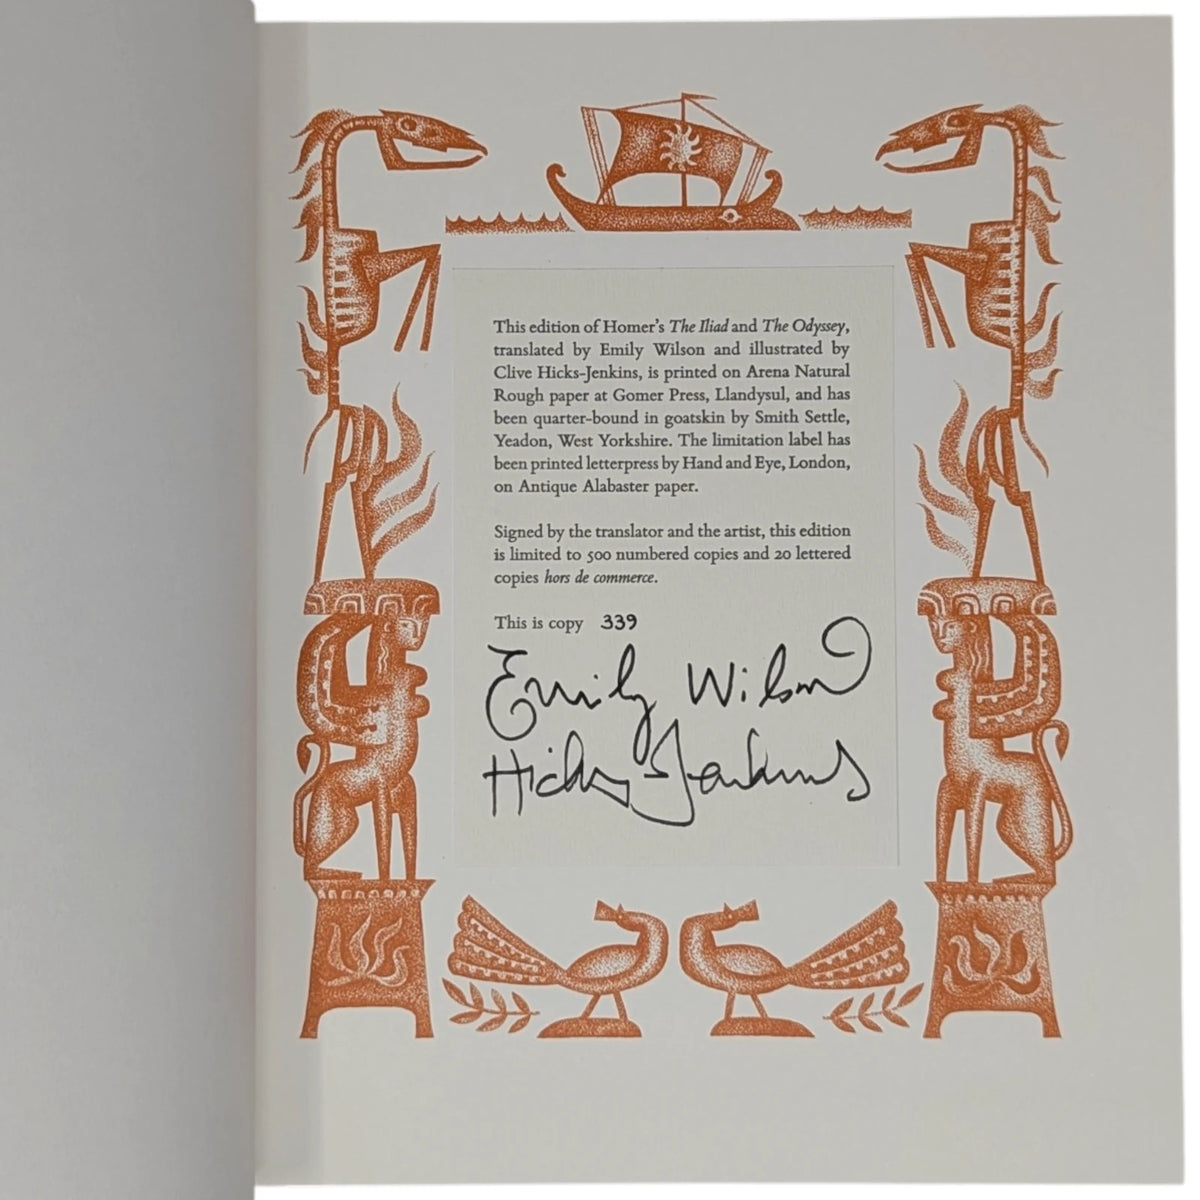 This edition of Homer's The Iliad and The Odyssey,
translated by Emily Wilson and illustrated by
Clive Hicks-Jenkins, is printed on Arena Natural
Rough paper at Gomer Press, Llandysul, and has
been quarter-bound in goatskin by Smith Settle,
Yeadon, West Yorkshire. The limitation label has
been printed letterpress by Hand and Eye, London,
on Antique Alabaster paper.
Signed by the translator and the artist, this edition
is limited to 500 numbered copies and 20 lettered
copies hors de commerce.
This is copy 339
Emily Wilson
Hicks-Jenkins